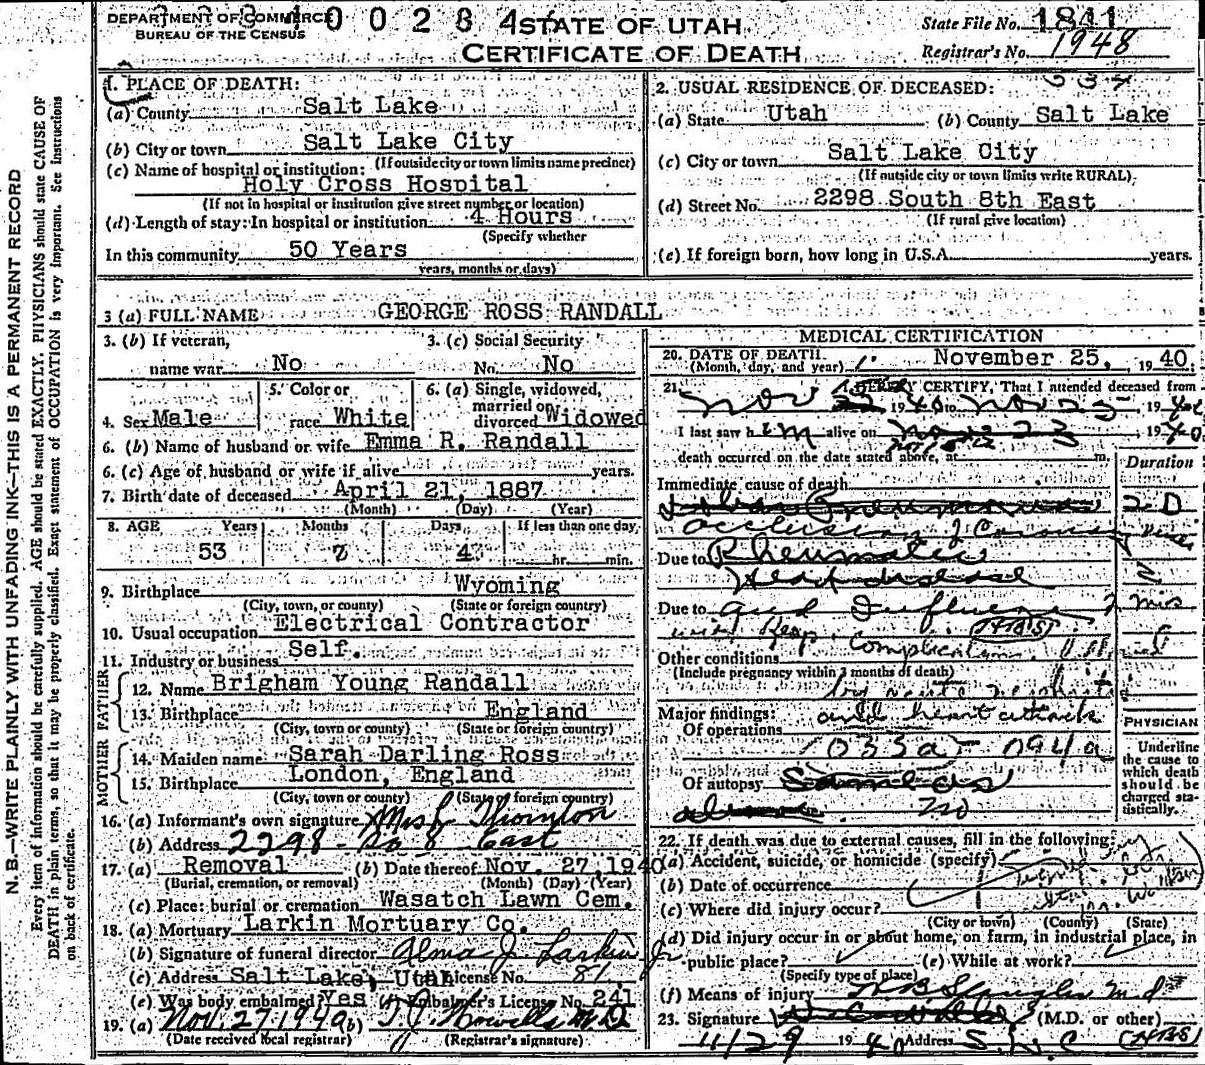 DEPARTMENT OF COMMERCE
BUREAU OF THE CENSUS
STATE OF UTAH
CERTIFICATE OF DEATH
State File No. 1841
Registrar's No. 1948
N.B.—WRITE PLAINLY WITH UNFADING INK—THIS IS A PERMANENT RECORD
Every item of information should be carefully supplied. AGE should be stated EXACTLY. PHYSICIANS should state CAUSE OF
DEATH in plain terms, so that it may be properly classified. Exact statement of OCCUPATION is very important. See Instructions
on back of certificate.
1. PLACE OF DEATH:
(a) County Salt Lake
(b) City or town Salt Lake City
(If outside city or town limits name precinct)
(c) Name of hospital or institution:
Holy Cross Hospital
(If not in hospital or institution give street number or location)
(d) Length of stay: In hospital or institution 4 Hours
(Specify whether
In this community 50 Years
years, months or days)
2. USUAL RESIDENCE OF DECEASED:
(a) State Utah (b) County Salt Lake
(c) City or town Salt Lake City
(If outside city or town limits write RURAL)
(d) Street No. 2298 South 8th East
(If rural give location)
(e) If foreign born, how long in U.S.A. years.
3 (a) FULL NAME GEORGE ROSS RANDALL
3. (b) If veteran,
name war No
3. (c) Social Security
No. No
4. Sex Male
5. Color or
race White
6. (a) Single, widowed,
married or
divorced Widowed
6. (b) Name of husband or wife Emma R. Randall
6. (c) Age of husband or wife if alive years.
7. Birth date of deceased April 21, 1887
(Month) (Day) (Year)
8. AGE Years Months Days If less than one day
53 7 4 hr. min.
9. Birthplace Wyoming
(City, town, or county) (State or foreign country)
10. Usual occupation Electrical Contractor
11. Industry or business Self.
FATHER
12. Name Brigham Young Randall
13. Birthplace England
(City, town or county) (State or foreign country)
MOTHER
14. Maiden name Sarah Darling Ross
15. Birthplace London, England
(City, town or county) (State or foreign country)
16. (a) Informant's own signature Mrs Thornton
(b) Address 2298 - So 8 East
17. (a) Removal (b) Date thereof Nov. 27, 1940
(Burial, cremation, or removal) (Month) (Day) (Year)
(c) Place: burial or cremation Wasatch Lawn Cem.
18. (a) Mortuary Larkin Mortuary Co.
(b) Signature of funeral director Alma J. Larkin Jr
(c) Address Salt Lake, Utah License No. 81
(e) Was body embalmed? Yes Embalmer's License No. 241
19. (a) Nov. 27 1940 (b) T J Howells M D
(Date received local registrar) (Registrar's signature)
MEDICAL CERTIFICATION
20. DATE OF DEATH November 25, 1940
(Month, day, and year)
21. I HEREBY CERTIFY, That I attended deceased from
Nov 1940 to Nov 25 1940
I last saw him alive on Nov 23 1940
death occurred on the date stated above, at m.
Immediate cause of death
Duration
2 D
occlusion of Coronary
Due to Rheumatic
Heart disease
Due to and Influenza
with Resp. complication
Other conditions
(Include pregnancy within 3 months of death)
by acute nephritis
Major findings: and heart attack
Of operations
033a - 094a
Of autopsy
no
PHYSICIAN
Underline
the cause to
which death
should be
charged sta-
tistically.
22. If death was due to external causes, fill in the following:
(a) Accident, suicide, or homicide (specify)
(b) Date of occurrence
(c) Where did injury occur?
(City or town) (County) (State)
(d) Did injury occur in or about home, on farm, in industrial place, in
public place? (e) While at work?
(Specify type of place)
(f) Means of injury
23. Signature (M.D. or other)
11/29 1940 Address S.L.C.